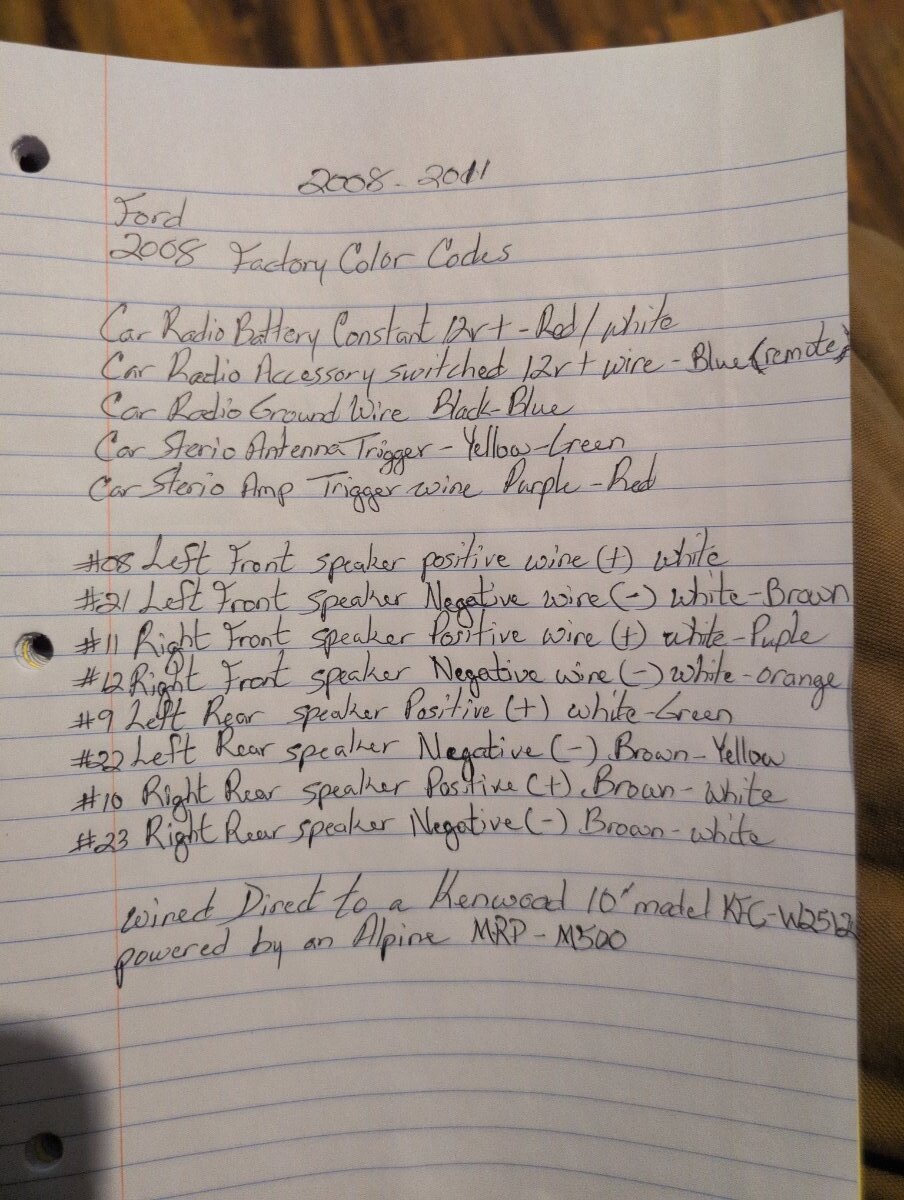 2008-2011
Ford
2008 Factory Color Codes
Car Radio Battery Constant 12v+ - Red/white
Car Radio Accessory switched 12v+ wire - Blue (remote)
Car Radio Ground Wire Black-Blue
Car Sterio Antenna Trigger - Yellow-Green
Car Sterio Amp Trigger wire Purple-Red
#08 Left Front speaker positive wire (+) white
#21 Left Front speaker Negative wire (-) white-Brown
#11 Right Front speaker Positive wire (+) white-Puple
#12 Right Front speaker Negative wire (-) white-orange
#9 Left Rear speaker Positive (+) white-Green
#22 Left Rear speaker Negative (-) Brown-Yellow
#10 Right Rear speaker Positive (+) Brown-white
#23 Right Rear speaker Negative (-) Brown-white
wired Direct to a Kenwood 10" model KFC-W2512
powered by an Alpine MRP-M500